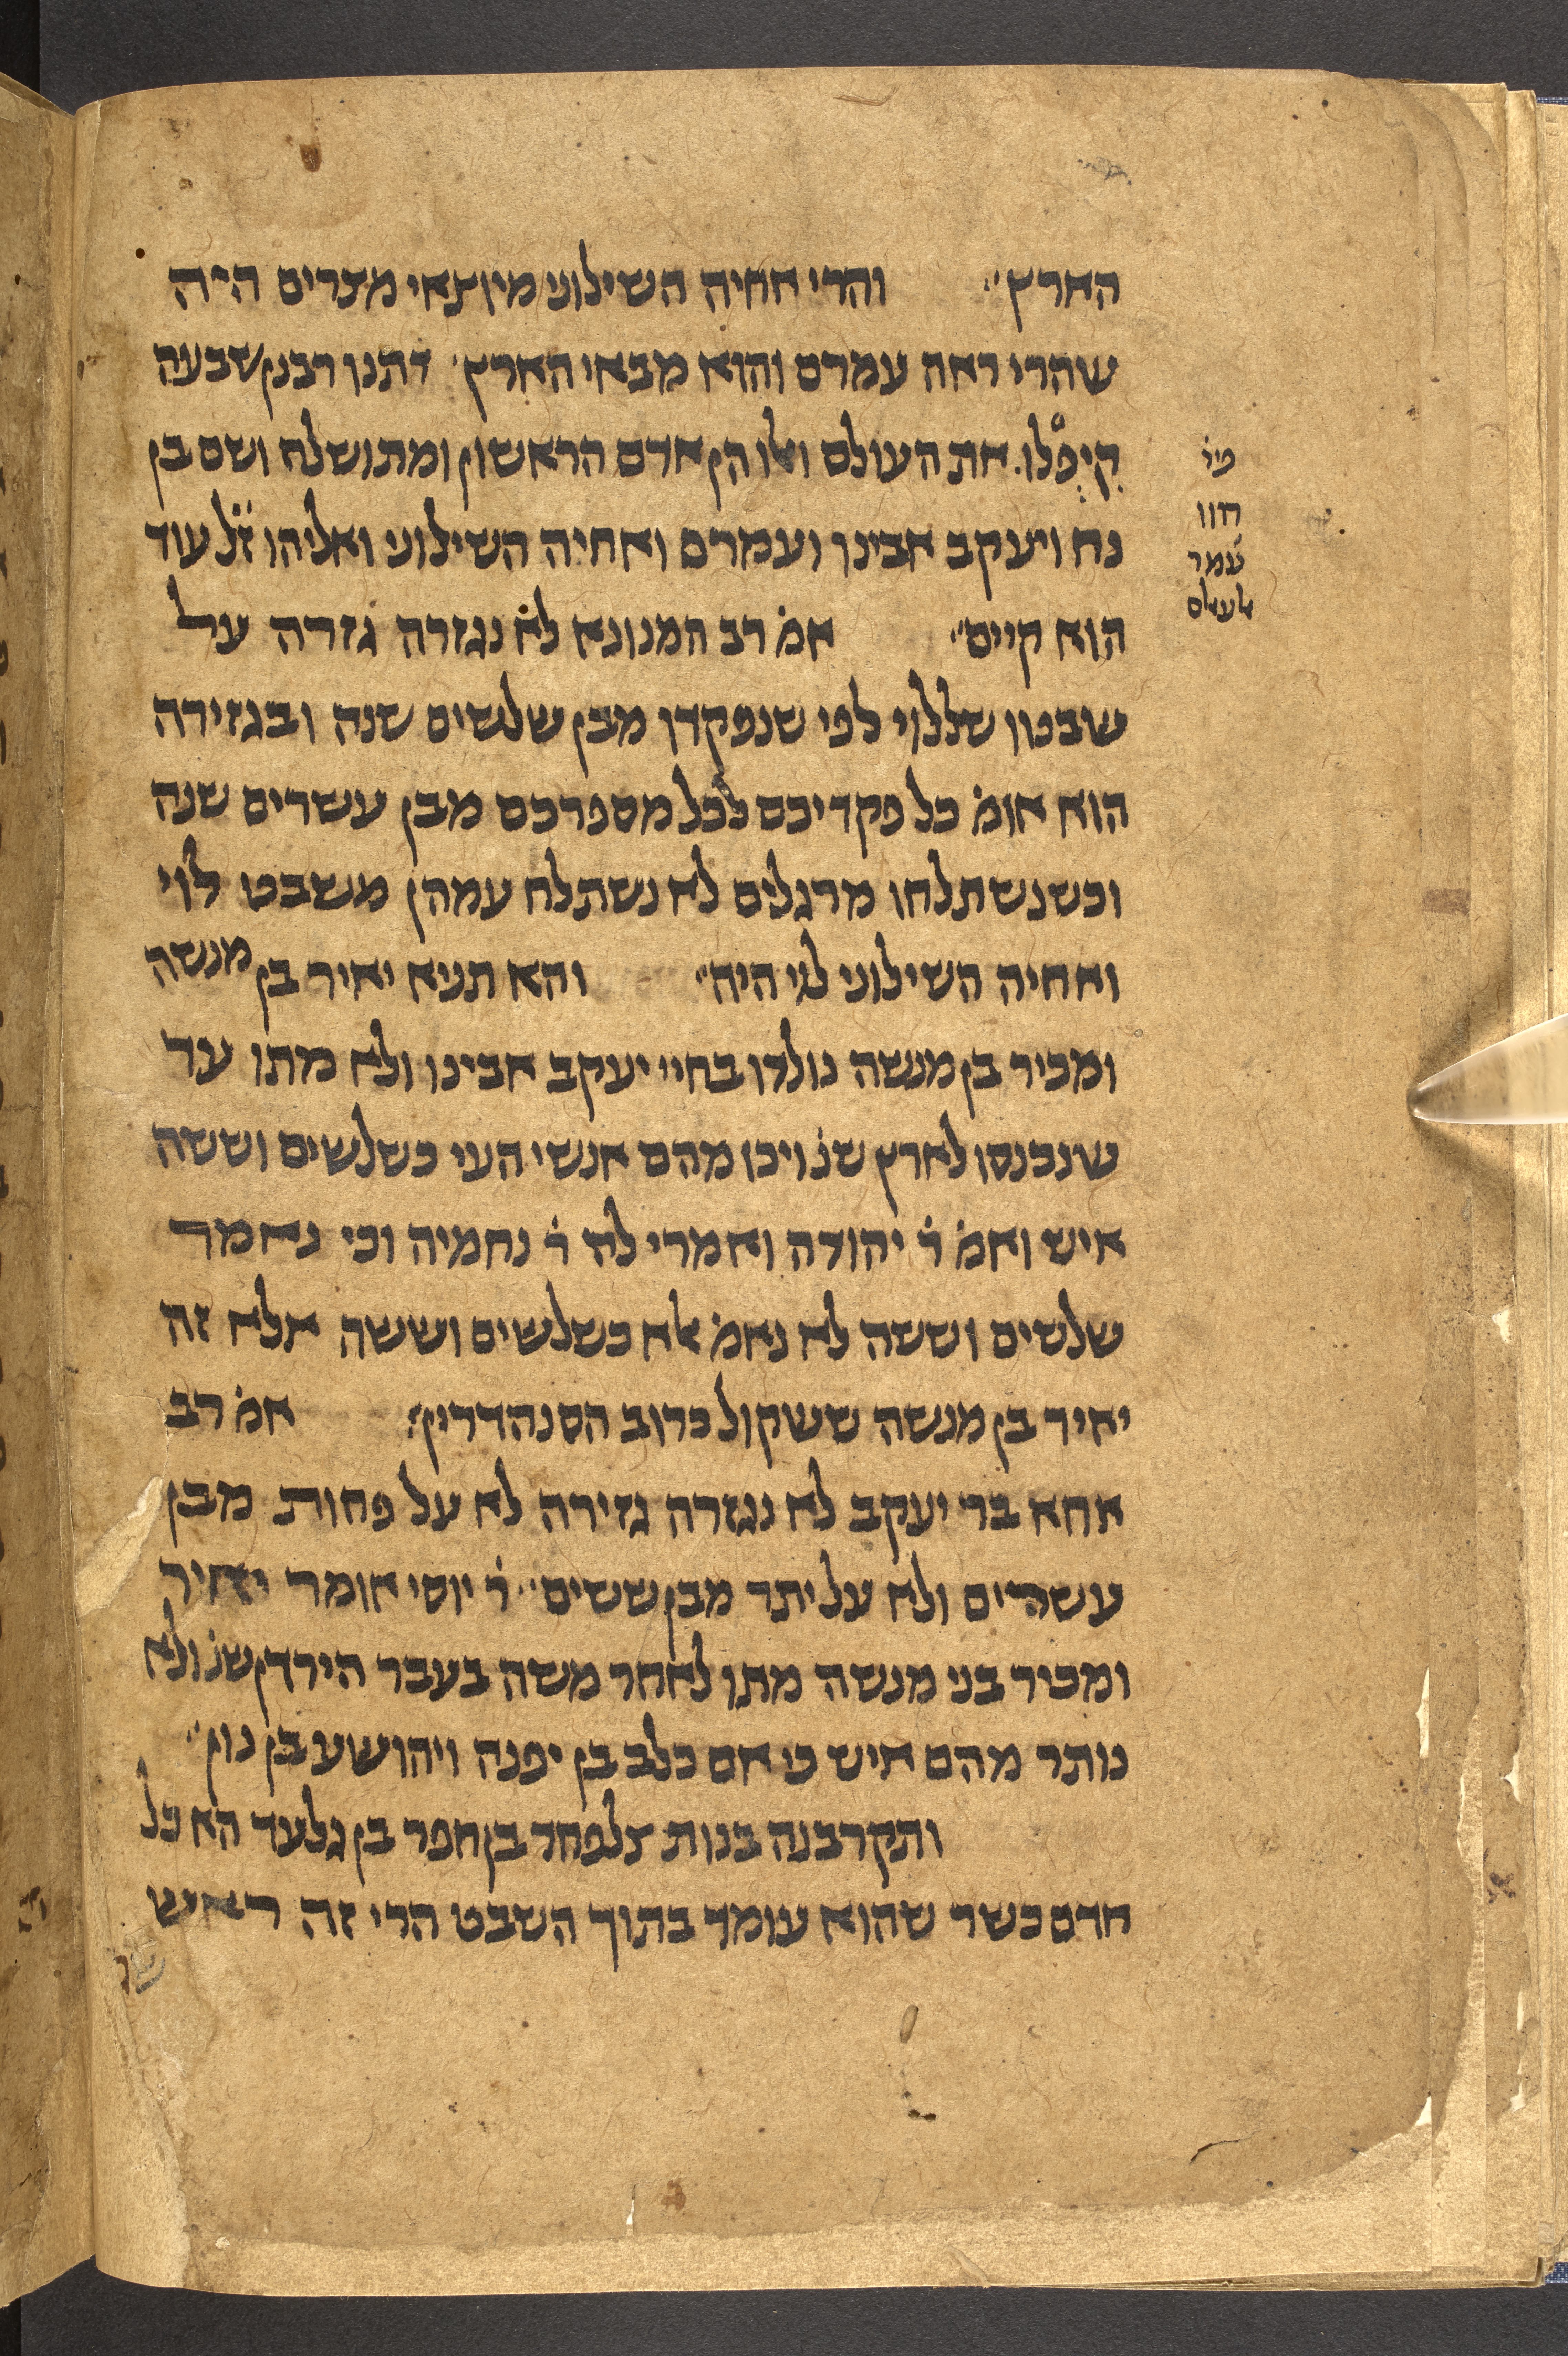 הארץ׳׳ והרי אחיה השילוני מיוצאי מצרים היה
שהרי ראה עמרם והוא מבאי הארץ׳ דתנו רבנן שבעה
קיפלו את העולם ואלו הן אדם הראשון ומתושלח ושם בן
נח ויעקב אבינו ועמרם ואחיה השילוני ואליהו ז̇ל עוד
הוא קיים׳׳ אמ̇ רב המנונא לא נגזרה גזרה על
שבטו שללוי לפי שנפקדו מבן שלשים שנה ובגזירה
הוא אומ̇ כל פקדיכם לכל מספרכם מבן עשרים שנה
וכשנשתלחו מרגלים לא נשתלח עמהן משבט לוי
ואחיה השילוני לוי היה׳׳ והא תניא יאיר בן מנשה
ומכיר בן מנשה נולדו בחיי יעקב אבינו ולא מתו עד
שנכנסו לארץ שנ̇ ויכו מהם אנשי העי כשלשים וששה
איש ואמ̇ ר̇ יהודה ואמרי לה ר̇ נחמיה וכי נאמר
שלשים וששה לא נאמ̇ אלא כשלשים וששה אלא זה
יאיר בן מנשה ששקול כרוב הסנהדרין׳׳ אמ̇ רב
אחא בר יעקב לא נגזרה גזירה לא על פחות מבן
עשרים ולא על יתר מבן ששים׳׳ ר̇ יוסי אומר יאיר
ומכיר בני מנשה מתו לאחר משה בעבר הירדן שנ̇ ולא
נותר מהם איש כי אם כלב בן יפנה ויהושע בן נון׳׳
ותקרבנה בנות צלפחד בן חפר בן גלעד הא כל
אדם כשר שהוא עומד בתוך השבט הרי זה ראש
פי̇
חוו
עמר
אלעאלם